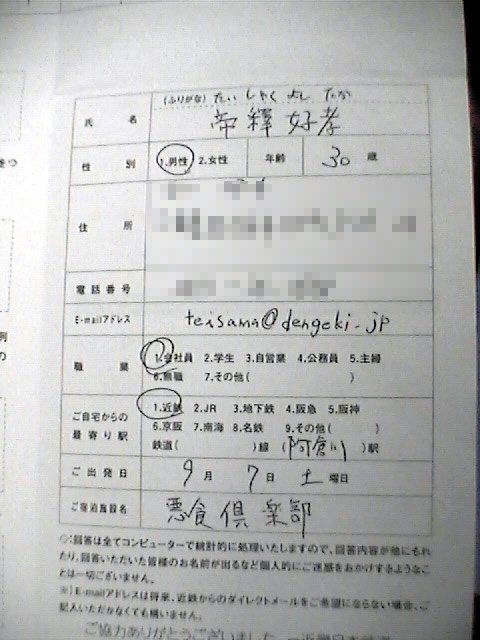 をつ
例
の
(ふりがな) たい しゃく よし たか
氏 名 帝釋好孝
性 別 1.男性 2.女性 年齢 30 歳
住 所
電話番号
E-mailアドレス teisama@dengeki.jp
職 業 1.会社員 2.学生 3.自営業 4.公務員 5.主婦
6.無職 7.その他( )
ご自宅からの 1.近鉄 2.JR 3.地下鉄 4.阪急 5.阪神
最寄り駅 6.京阪 7.南海 8.名鉄 9.その他( )
鉄道( )線 (阿倉川)駅
ご出発日 9 月 7 日 土 曜日
ご宿泊施設名 悪食倶楽部
◇:回答は全てコンピューターで統計的に処理いたしますので、回答内容が他にもれ
たり、回答いただいた皆様のお名前が出るなど個人的にご迷惑をおかけするようなこ
とは一切ございません。
※)E-mailアドレスは将来、近鉄からのダイレクトメールをご希望にならない場合、ご
記入いただかなくても構いません。
ご協力ありがとうございました。